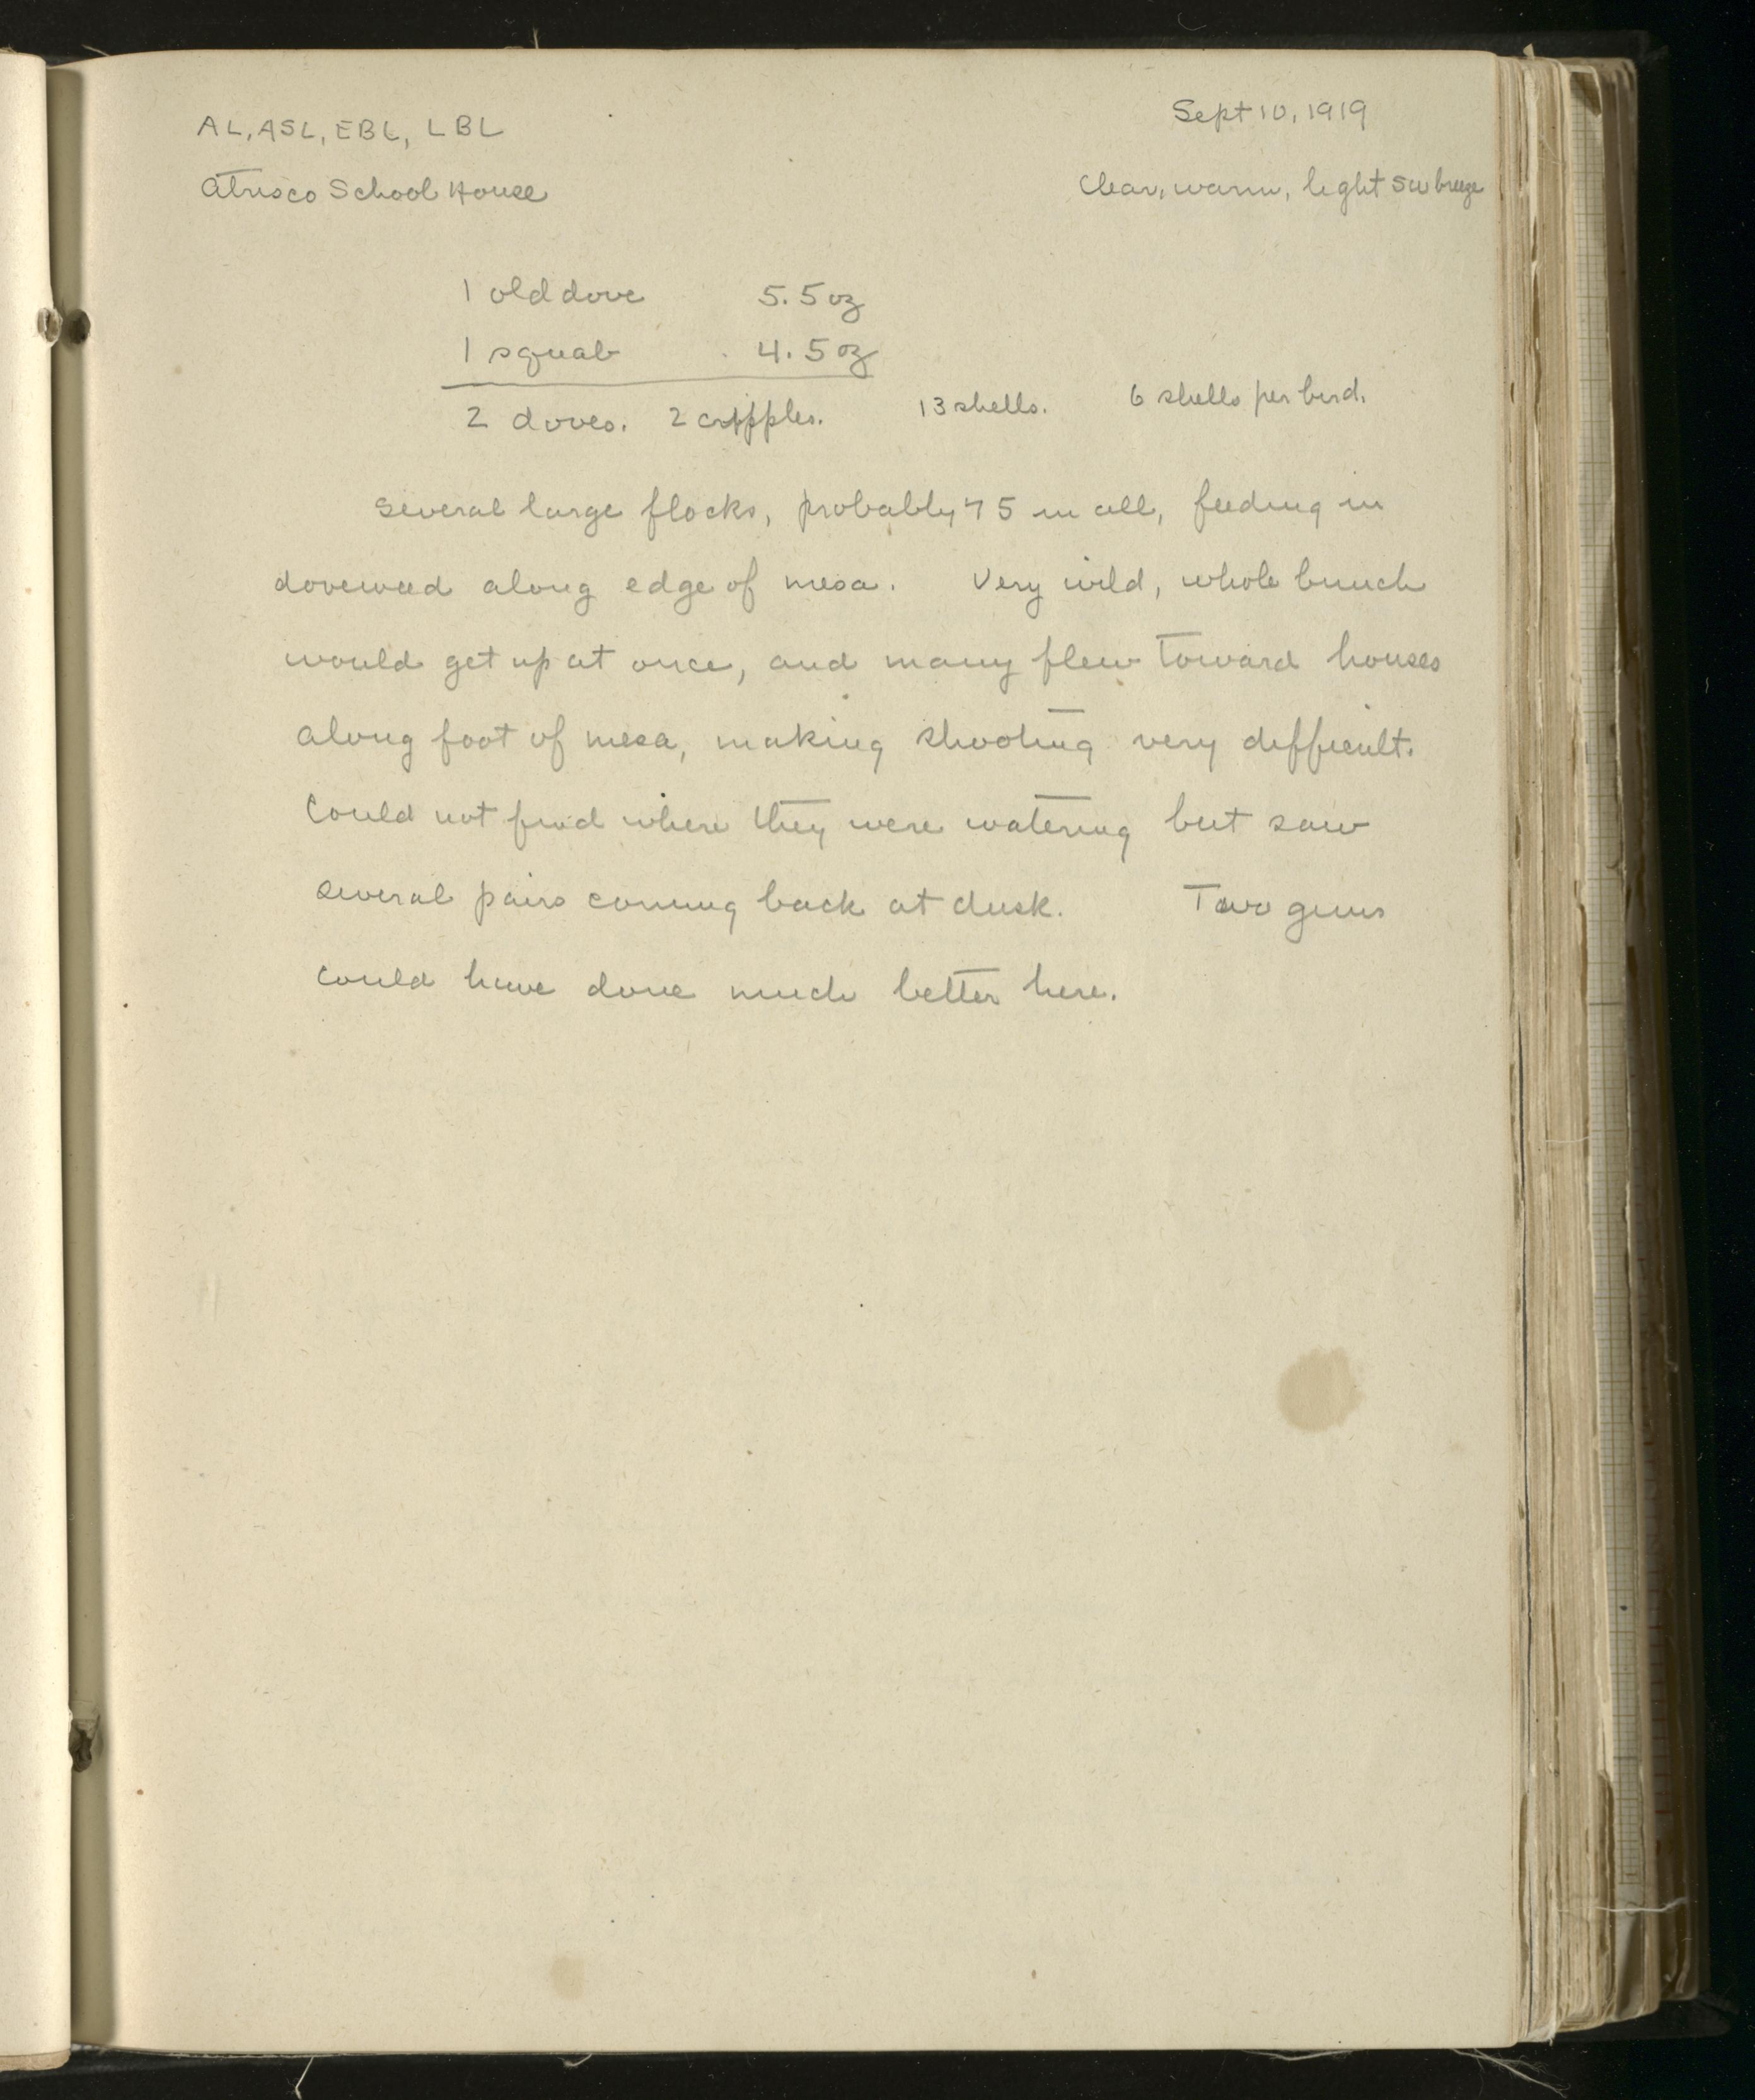 AL, ASL, EBL, LBL
Sept 10, 1919
Atrisco School House
Clear, warm, light SW breeze
1 old dove 5.5 oz
1 squab 4.5 oz
2 doves. 2 cripples. 13 shells. 6 shells per bird.
Several large flocks, probably 75 in all, feeding in
doveweed along edge of mesa. Very wild, whole bunch
would get up at once, and many flew toward houses
along foot of mesa, making shooting very difficult.
Could not find where they were watering but saw
several pairs coming back at dusk. Two guns
could have done much better here.